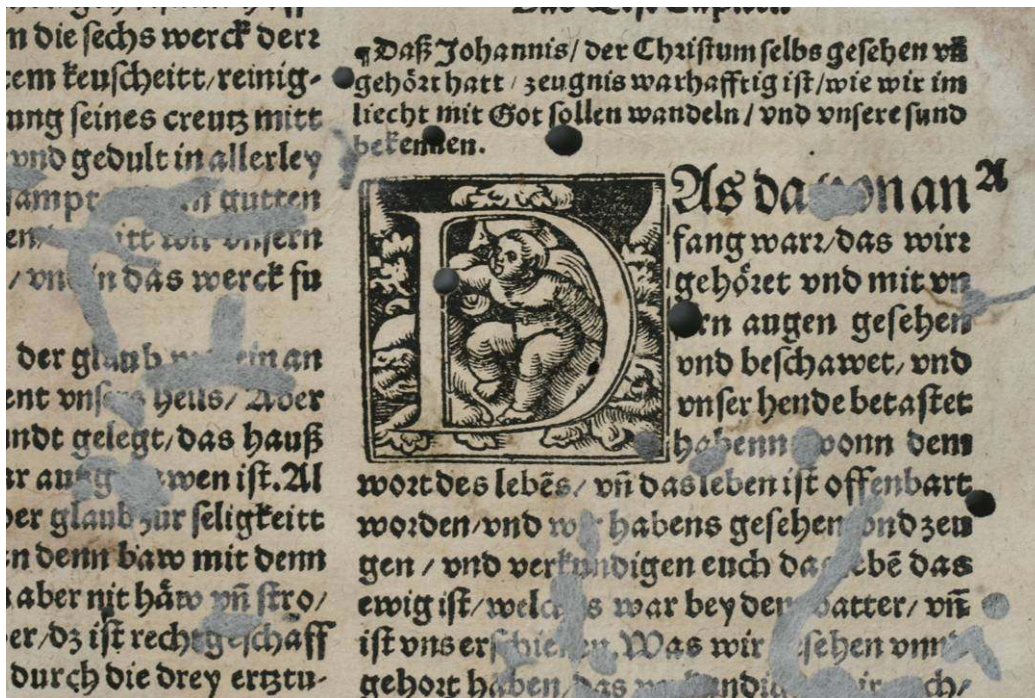 n die sechs werck derr
tem keuscheitt/reinig-
ung seines creutz mitt
vnd gedult in allerley
sampt gutten
itt vnsern
/ vnd in das werck fu
der glaub ein an
ent vnsers heils/ Aber
ndt gelegt/das hauß
wen ist. Al
er glaub zur seligkeitt
n denn baw mit denn
aber nit häw vñ stro/
er/dz ist rechtgeschaff
durch die drey ertztu-
¶Daß Johannis/ der Christum selbs gesehen vñ
gehört hatt / zeugnis warhafftig ist/wie wir im
liecht mit Got sollen wandeln / vnd vnsere sund
bekennen.
DAs da von an A
fang warr/das wirr
gehöret vnd mit vn
rn augen gesehen
vnd beschawet/ vnd
vnser hende betastet
habenn vonn dem
wort des lebēs/ vñ das leben ist offenbart
worden/vnd wir habens gesehen vnd zeu
gen / vnd verkundigen euch das lebē das
ewig ist/welches war bey dem vatter/ vñ
ist vns erschienen. Was wir gesehen vnn
gehort haben/das wir